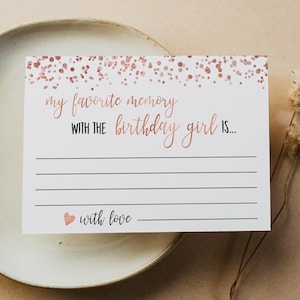 my favorite memory
WITH THE birthday girl IS...
with love